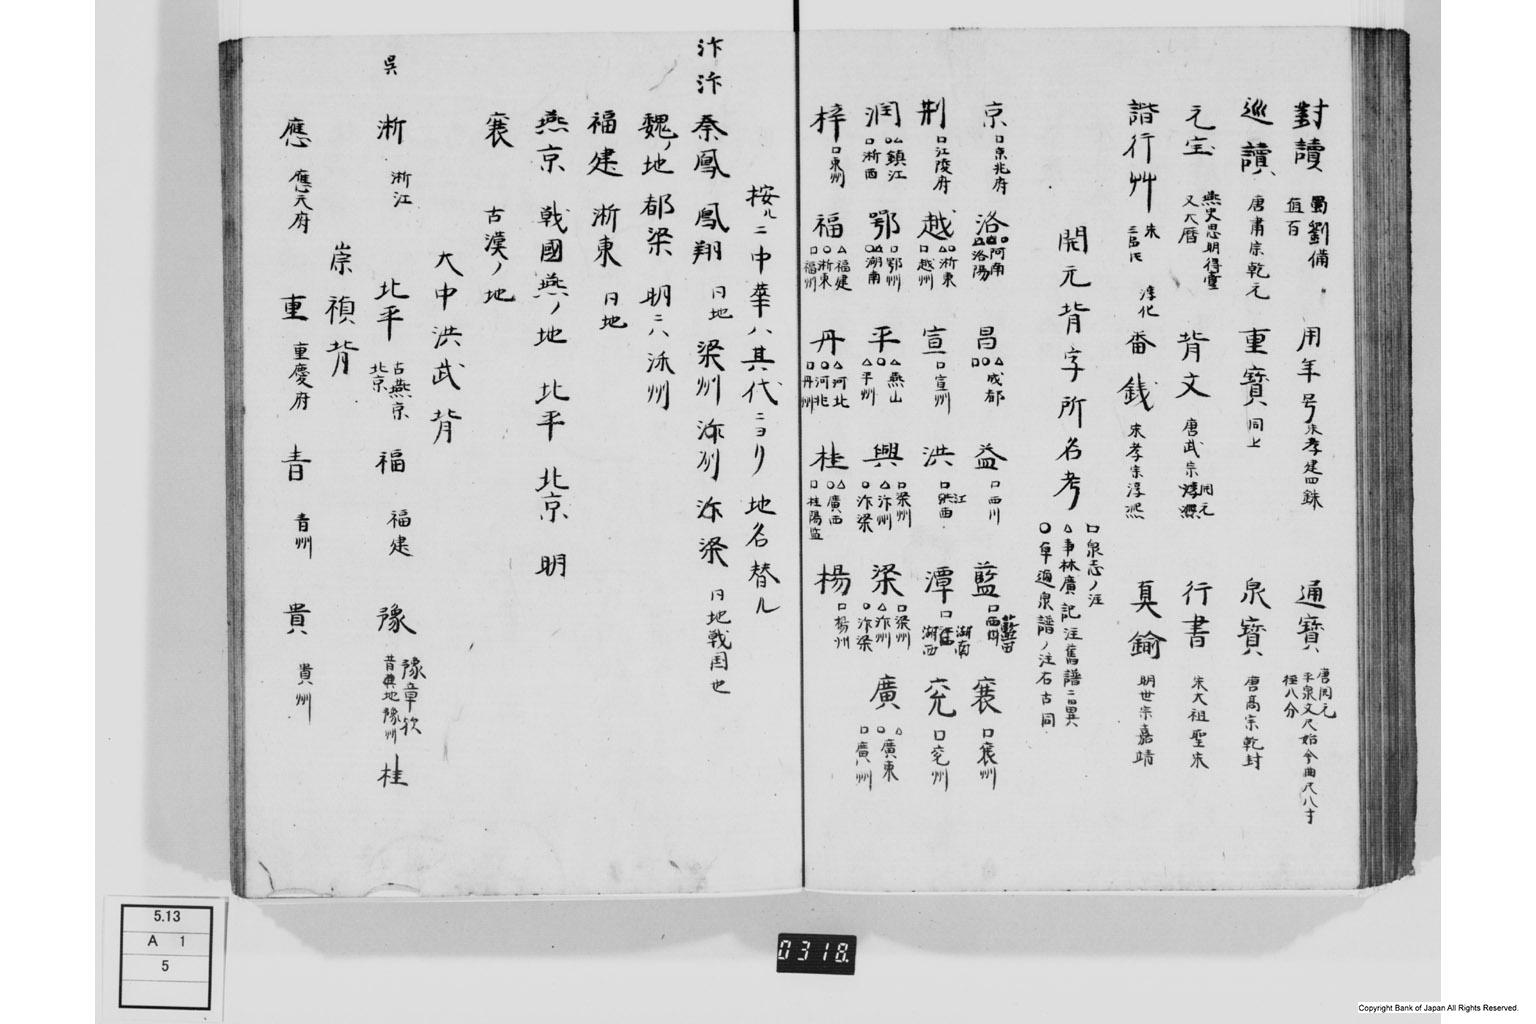 對讀 蜀劉備 値百 用年号 宋孝建四銖 通寳 唐開元 平泉文尺始今曲尺八寸 径八分
巡讀 唐肅宗乾元 重寳 同上 泉寳 唐高宗乾封
元宝 燕史思明得壹 又大暦 背文 唐武宗開元 淳熈 行書 宋太祖聖宋
諧行艸 宋 淳化 番錢 宋孝宗淳熈 真鍮 明世宗嘉靖
開元背字所名考 □泉志ノ注 △事林廣記注舊譜ニ曰異 ○阜通泉譜ノ注石古同
京 □京兆府 洛 ○河南 洛陽 昌 △成都 益 □西川 藍 藍田 襄 □襄州
荆 □江陵府 越 △○浙東 □越州 宣 □宣州 洪 □江西 潭 湖南 湖西 兖 □兖州
潤 鎮江 □浙西 鄂 □鄂州 湖南 平 △燕山 △平州 興 □梁州 △汴州 ○汴梁 梁 □梁州 △汴州 ○汴梁 廣 △○廣東 □廣州
梓 □東州 福 △福建 ○浙東 □福州 丹 △河北 □丹州 桂 △○廣西 □桂陽監 楊 □楊州
按ルニ中華ハ其代ニヨリ地名替ル
汴汴 秦鳳 鳳翔 同地 梁州 汴州 汴梁 同地戦国也
魏ノ地 都梁 明ニハ 泳州
福建 浙東 同地
燕京 戰國燕ノ地 北平 北京 明
襄 古漢ノ地
大中洪武背
呉 浙 浙江 北平 古燕京 北京 福 福建 豫 豫章欤 昔與地豫州 桂
崇禎背
應 應天府 重 重慶府 青 青州 貴 貴州
5.13
A 1
5
0318.
Copyright Bank of Japan All Rights Reserved.